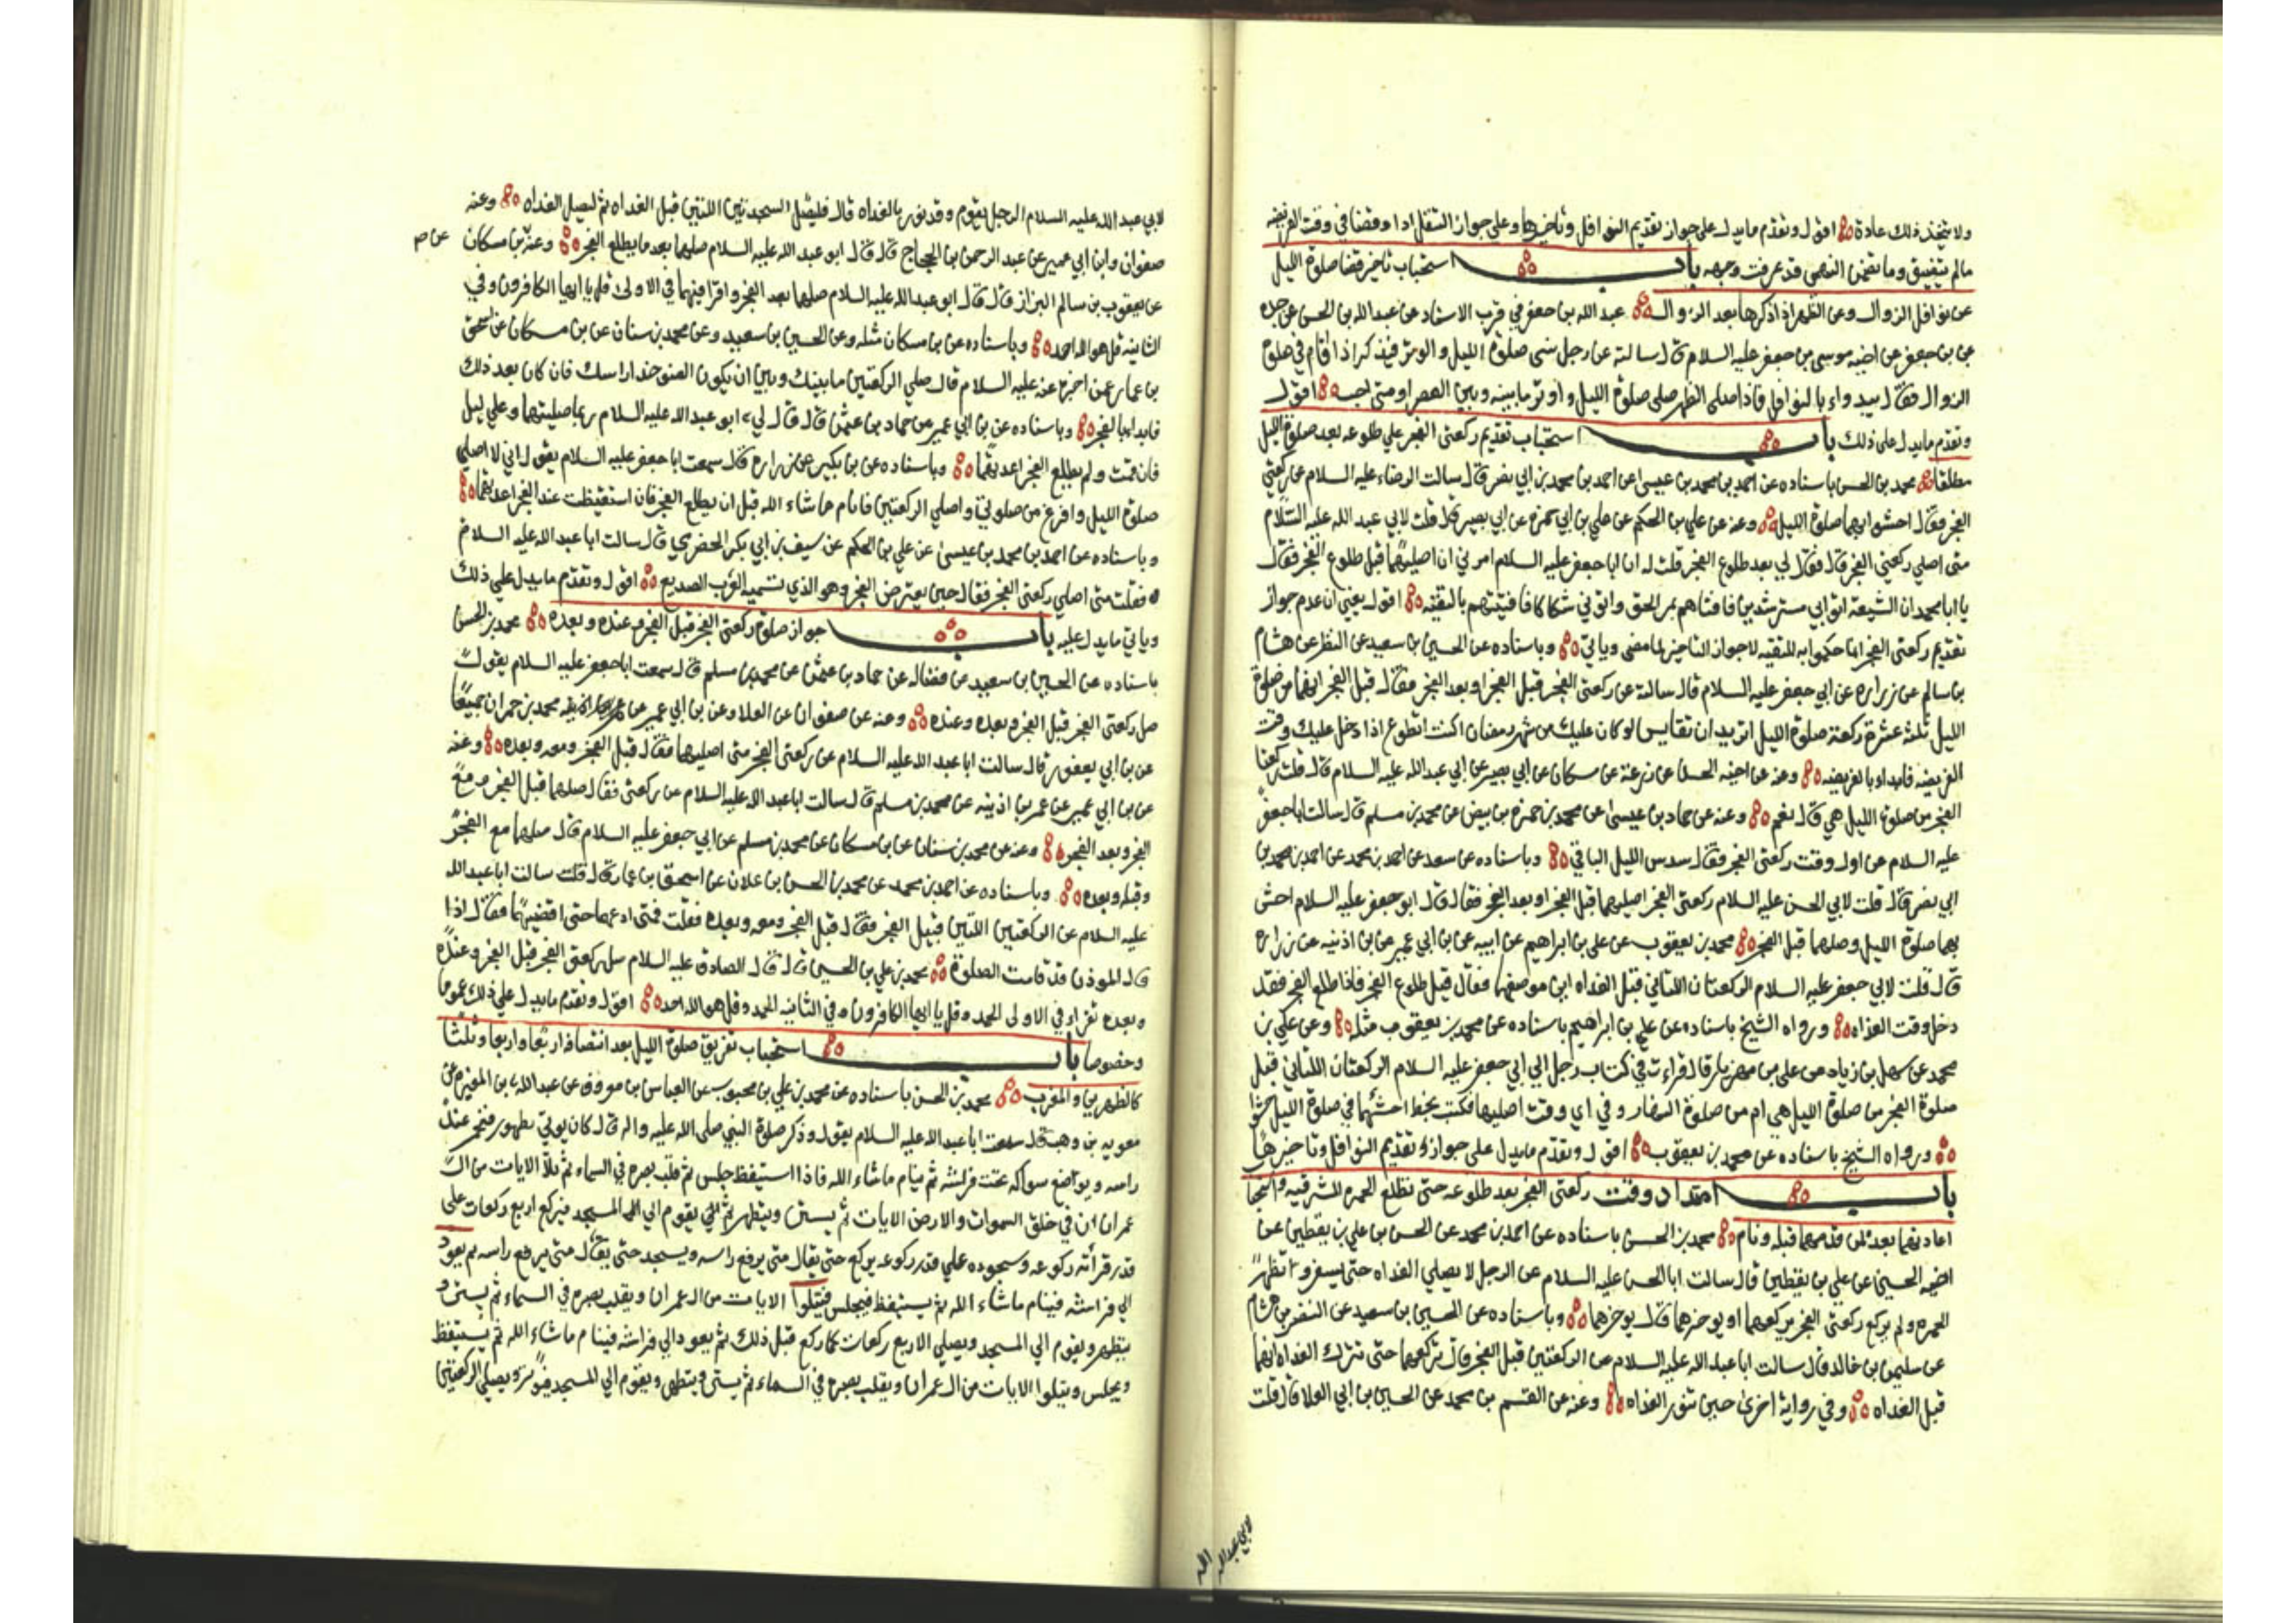 ولا يتخذ ذلك عادة اقول وتقدم ما يدل على جواز تقديم النوافل وتاخيرها وعلى جواز التنفل اداء وقضا في وقت الفريضه
مالم يتضيق وما تضمن النهي قد عرفت وجهه باب استحباب تاخير قضا صلوة الليل
عن نوافل الزوال وعن الظهر اذا ذكرها بعد الزوال عبد الله بن جعفر في قرب الاسناد عن عبد الله بن الحسن عن جده
علي بن جعفر عن اخيه موسى بن جعفر عليه السلام قال سالته عن رجل نسى صلوة الليل والوتر فيذكر اذا قام في صلوة
الزوال فقال يبدء بالنوافل فاذا صلى الظهر صلى صلوة الليل واوتر ما بينه وبين العصر او متى احب اقول
وتقدم ما يدل على ذلك باب استحباب تقديم ركعتى الفجر على طلوعه بعد صلوة الليل
مطلقا محمد بن الحسن باسناده عن احمد بن محمد بن عيسى عن احمد بن محمد بن ابي نصر قال سالت الرضاء عليه السلام عن ركعتي
الفجر فقال احشوا بهما صلوة الليل وعنه عن علي بن الحكم عن علي بن ابي حمزه عن ابي بصير قال قلت لابي عبد الله عليه السلام
متى اصلي ركعتي الفجر قال فقال لي بعد طلوع الفجر قلت له ان ابا جعفر عليه السلام امرني ان اصليهما قبل طلوع الفجر فقال
يا ابا محمد ان الشيعة اتوا ابي مسترشدين فافتاهم بمر الحق واتوني شكاكا فافتيتهم بالتقيه اقول يعني ان عدم جواز
تقديم ركعتى الفجر انما حكموا به للتقيه لا جواز التاخير لما مضى وياتي وباسناده عن الحسين بن سعيد عن النظر عن هشام
بن سالم عن زراره عن ابي جعفر عليه السلام قال سالته عن ركعتى الفجر قبل الفجر او بعد الفجر فقال قبل الفجر انهما من صلوة
الليل ثلثة عشرة ركعة صلوة الليل اتريد ان تقايس لو كان عليك من شهر رمضان اكنت تطوع اذا دخل عليك وقت
الفريضه فابداء بالفريضه وعنه عن اخيه الحسن عن زرعة عن سكان عن ابي بصير عن ابي عبد الله عليه السلام قال قلت ركعتا
الفجر من صلوة الليل هي قال نعم وعنه عن حماد بن عيسى عن محمد بن حمزه بن بيض عن محمد بن مسلم قال سالت ابا جعفر
عليه السلام عن اول وقت ركعتى الفجر فقال سدس الليل الباقي وباسناده عن سعد عن احمد بن محمد عن احمد بن محمد بن
ابي نصر قال قلت لابي الحسن عليه السلام ركعتى الفجر اصليهما قبل الفجر او بعد الفجر فقال قال ابو جعفر عليه السلام احش
بهما صلوة الليل وصلهما قبل الفجر محمد بن يعقوب عن على بن ابراهيم عن ابيه عن بن ابي عمير عن بن اذينه عن زراره
قال قلت لابي جعفر عليه السلام الركعتان اللتاني قبل الغداه اين موضعهما فقال قبل طلوع الفجر فاذا طلع الفجر فقد
دخل وقت الغداه ورواه الشيخ باسناده عن علي بن ابراهيم باسناده عن محمد بن يعقوب مثله وعن علي بن
محمد عن سهل بن زياد عن على بن مهزيار قال قراءت في كتاب رجل الي ابي جعفر عليه السلام الركعتان اللتاني قبل
صلوة الفجر من صلوة الليل هي ام من صلوة النهار وفي اي وقت اصليها فكتب بخط احشهما في صلوة الليل حشوا
ورواه الشيخ باسناده عن محمد بن يعقوب اقول وتقدم ما يدل على جواز تقديم النوافل وتاخيرها
باب امتداد وقت ركعتى الفجر بعد طلوعه حتى تطلع الحمره المشرقيه واستحبا
اعادتهما بعد لمن قدمهما قبله ونام محمد بن الحسن باسناده عن احمد بن محمد عن الحسن بن علي بن يقطين عن
اخيه الحسين عن علي بن يقطين قال سالت ابا الحسن عليه السلام عن الرجل لا يصلي الغداه حتى يسفر وتظهر
الحمره ولم يركع ركعتى الفجر يركعهما او يوخرهما قال يوخرهما وباسناده عن الحسين بن سعيد عن النضر عن هشام
عن سليمن بن خالد قال سالت ابا عبد الله عليه السلام عن الركعتين قبل الفجر قال تركعهما حتى تترك الغداه انهما
قبل الغداه وفي رواية اخرى حين تنور الغداه وعنه عن القسم بن محمد عن الحسين بن ابي العلا قال قلت
لابي عبد الله
لابي عبد الله عليه السلام الرجل يقوم وقد نور بالغداه قال فليصل السجدتين اللتين قبل الغداه ثم ليصل الغداه وعنه
صفوان وابن ابي عمير عن عبد الرحمن بن الحجاج قال قال ابو عبد الله عليه السلام صلهما بعد ما يطلع الفجر وعنه بن مسكان
عن ص
عن يعقوب بن سالم البزاز قال قال ابو عبد الله عليه السلام صلهما بعد الفجر واقرا فيهما في الاولى قل يا ايها الكافرون وفي
الثانيه قل هو الله احد وباسناده عن بن مسكان مثله وعن الحسين بن سعيد وعن محمد بن سنان عن بن مسكان عن اسحق
بن عمار عمن اخبره عنه عليه السلام قال صلي الركعتين ما بينك وبين ان يكون الضوء حذا راسك فان كان بعد ذلك
فابدا بالفجر وباسناده عن بن ابي عمير عن حماد بن عثمن قال قال لي ابو عبد الله عليه السلام ربما صليتهما وعلي ليل
فان نمت ولم يطلع الفجر اعدتهما وباسناده عن بن بكير عن زراره قال سمعت ابا جعفر عليه السلام يقول اني لا اصلي
صلوة الليل وافرغ من صلوتي واصلي الركعتين فانام ما شاء الله قبل ان يطلع الفجر فان استيقظت عند الفجر اعدتهما
وباسناده عن احمد بن محمد بن عيسى عن علي بن الحكم عن سيف بن ابي بكر الحضرمي قال سالت ابا عبد الله عليه السلام
فقلت متى اصلي ركعتى الفجر فقال حين يعترض الفجر وهو الذي تسميه العرب الصديع اقول وتقدم ما يدل على ذلك
وياتي ما يدل عليه باب جواز صلوة ركعتى الفجر قبل الفجر وعنده وبعده محمد بن الحسن
باسناده عن الحسين بن سعيد عن فضاله عن حماد بن عثمن عن محمد بن مسلم قال سمعت ابا جعفر عليه السلام يقول
صل ركعتى الفجر قبل الفجر وبعده وعنده وعنه عن صفوان عن العلا وعن بن ابي عمير عن محمد بن حمران جميعا
عن بن ابي يعفور قال سالت ابا عبد الله عليه السلام عن ركعتى الفجر متى اصليهما فقال قبل الفجر ومعه وبعده وعنه
عن بن ابي عمير عن عمر بن اذينه عن محمد بن مسلم قال سالت ابا عبد الله عليه السلام عن ركعتى فقال صلهما قبل الفجر ومع
الفجر وبعد الفجر وعنه عن محمد بن سنان عن بن مسكان عن محمد بن مسلم عن ابي جعفر عليه السلام قال صلهما مع الفجر
وقبله وبعده وباسناده عن احمد بن محمد عن محمد بن الحسن بن علان عن اسحق بن عمار قال قلت سالت ابا عبد الله
عليه السلام عن الركعتين اللتين قبيل الفجر فقال قبل الفجر ومعه وبعده فقلت فمتى ادعهما حتى اقضيهما فقال اذا
قال الموذن قد قامت الصلوة محمد بن علي بن الحسين قال قال الصادق عليه السلام صل ركعتى الفجر قبل الفجر وعنده
وبعده تقراء في الاولى الحمد وقل يا ايها الكافرون وفي الثانيه الحمد وقل هو الله احد اقول وتقدم ما يدل علي ذلك عموما
وخصوصا باب استحباب تفريق صلوة الليل بعد انتصافه اربعا واربعا وثلثا
كالظهرين والمغرب محمد بن الحسن باسناده عن محمد بن علي بن محبوب عن العباس بن موروف عن عبد الله بن المغيره عن
معويه بن وهب قال سمعت ابا عبد الله عليه السلام يقول وذكر صلوة النبي صلى الله عليه واله قال كان يوتي بطهور فيخمر عند
راسه ويواضع سواكه تحت فراشه ثم ينام ما شاء الله فاذا استيقظ جلس ثم قلب بصره في السماء ثم تلا الايات من ال
عمران ان في خلق السموات والارض الايات ثم يستن ويتطهر ثم يقوم الي المسجد فيركع اربع ركعات على
قدر قرأته ركوعه وسجوده علي قدر ركوعه يركع حتى يقال متى يرفع راسه ويسجد حتى يقال متى يرفع راسه ثم يعود
الي فراشه فينام ما شاء الله ثم يستيقظ فيجلس فيتلوا الايات من ال عمران ويقلب بصره في السماء ثم يستن و
يتطهر ويقوم الي المسجد ويصلي الاربع ركعات كما ركع قبل ذلك ثم يعود الي فراشه فينام ما شاء الله ثم يستيقظ
ويجلس ويتلوا الايات من ال عمران ويقلب بصره في السماء ثم يستن ويتطهر ويقوم الي المسجد فيوتر ويصلي الركعتين